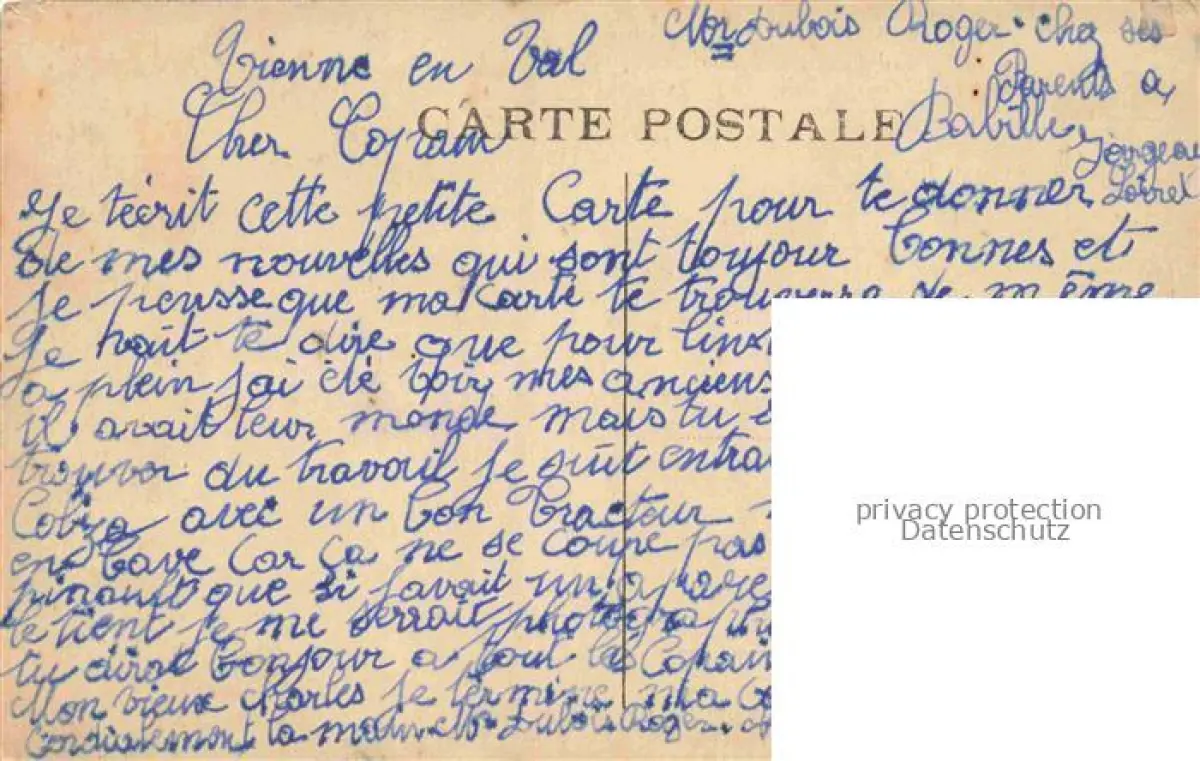 Mr Dubois Roger chez ses
Parents a
Babille
Jargeau
Loiret
Vienne en Val
CARTE POSTALE
Cher Copain
Je técrit cette petite Carte pour te donner
de mes nouvelles qui sont toujour bonnes et
Je pensse que ma carte te trouverra de même
Je vait te dire que pour lins
a plein jai été voir mes anciens
il avait leur monde mais tu
trouver du travail Je suit entra
avec un bon Tracteur
en bave Car ça ne se coupe pas
que si javait un apare
le tient je me serrait photogra
tu diras bonjour a tout les Copain
Mon vieux Charles Je termine ma
Cordialement la main Mr Dubois Roger
privacy protection
Datenschutz